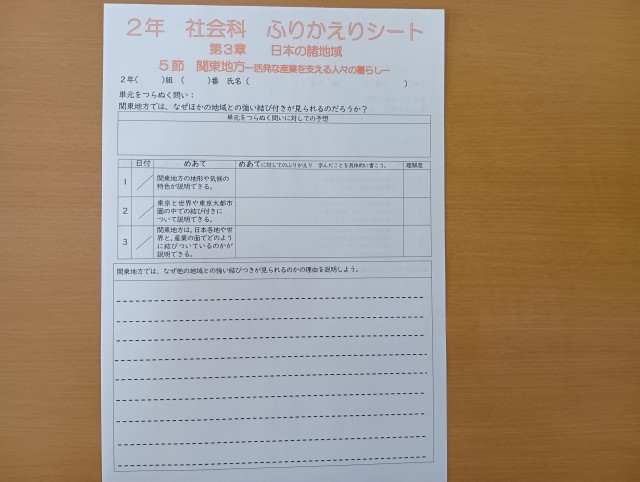 2年 社会科 ふりかえりシート
第3章 日本の諸地域
5節 関東地方―活発な産業を支える人々の暮らし―
2年( )組 ( )番 氏名( )
単元をつらぬく問い:
関東地方では、なぜほかの地域との強い結び付きが見られるのだろうか?
単元をつらぬく問いに対しての予想
日付 めあて めあてに対してのふりかえり 学んだことを具体的に書こう。 理解度
1 ／ 関東地方の地形や気候の
特色が説明できる。
2 ／ 東京と世界や東京大都市
圏の中での結び付きに
ついて説明できる。
3 ／ 関東地方は、日本各地や世
界と、産業の面でどのよう
に結びついているのかが
説明できる。
関東地方では、なぜ他の地域との強い結びつきが見られるのかの理由を説明しよう。